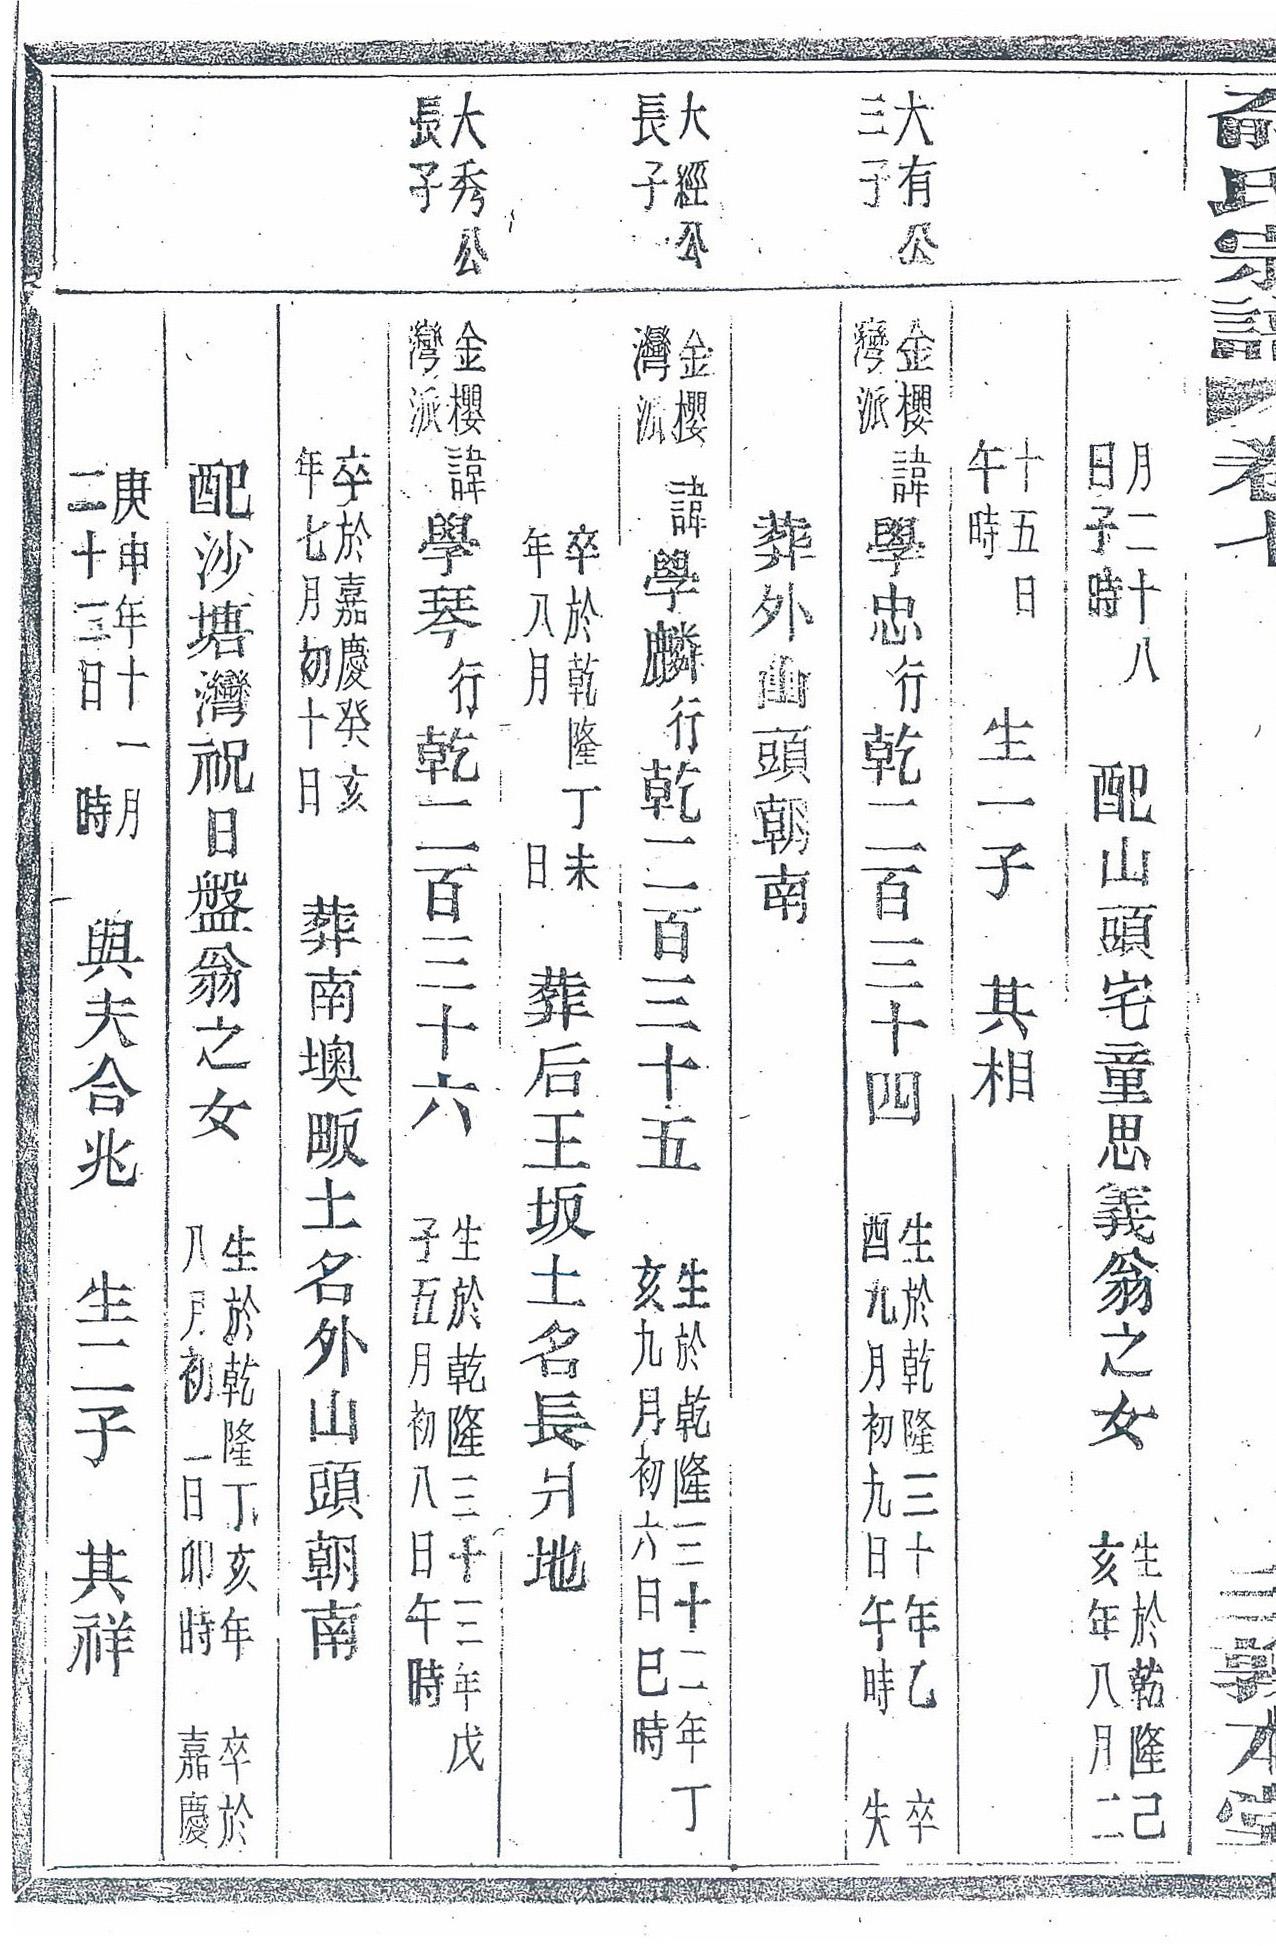 俞氏宗譜 卷七
敦本堂
月二十八
日子時
配山頭宅童思義翁之女
生於乾隆己
亥年八月二
十五日
午時
生一子 其相
大有公
三子
金櫻
灣派
諱學忠行乾二百三十四
生於乾隆三十年乙
酉九月初九日午時
卒
失
葬外山頭朝南
大經公
長子
金櫻
灣派
諱學麟行乾二百三十五
生於乾隆三十二年丁
亥九月初六日巳時
卒於乾隆丁未
年八月 日
葬后王坂土名長爿地
大秀公
長子
金櫻
灣派
諱學琴行乾二百三十六
生於乾隆三十三年戊
子五月初八日午時
卒於嘉慶癸亥
年七月初十日
葬南墺畈土名外山頭朝南
配沙塘灣祝日盤翁之女
生於乾隆丁亥年
八月初一日卯時
卒於
嘉慶
庚申年十一月
二十三日 時
與夫合兆 生二子 其祥